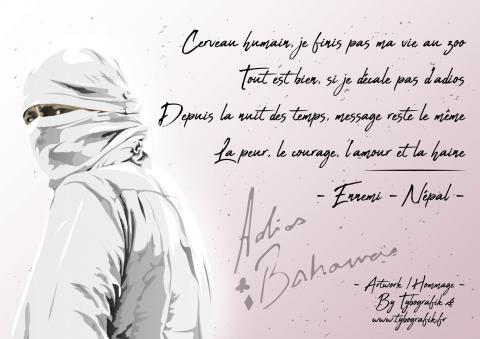 Cerveau humain, je finis pas ma vie au zoo
Tout est bien, si je décale pas d'adios
Depuis la nuit des temps, message reste le même
La peur, le courage, l'amour et la haine
- Ennemi - Népal -
Adios
Bahamas
- Artwork / Hommage -
By Tybografik &
www.tybografik.fr